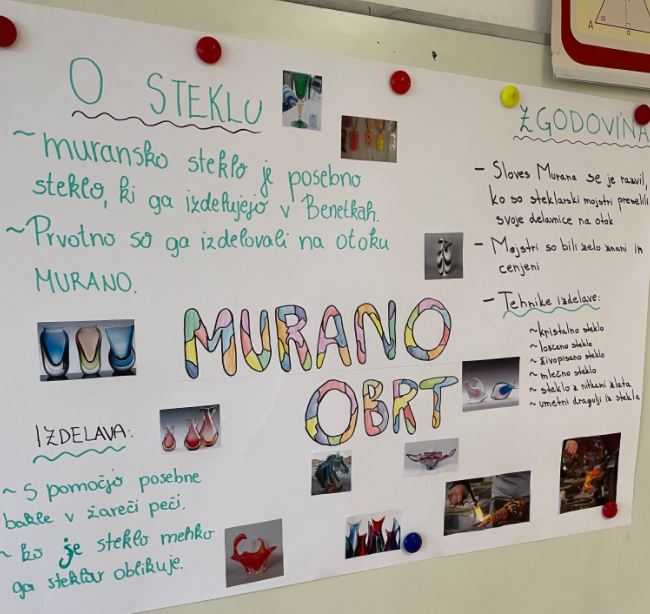 O STEKLU
~ muransko steklo je posebno
steklo, ki ga izdelujejo v Benetkah.
~ Prvotno so ga izdelovali na otoku
MURANO.
MURANO
OBRT
IZDELAVA:
~ S pomočjo posebne
bakle v žareči peči.
~ ko je steklo mehko
ga steklar oblikuje.
ZGODOVINA
- Sloves Murana se je razvil,
ko so steklarski mojstri preselili
svoje delavnice na otok
- Mojstri so bili zelo znani in
cenjeni
- Tehnike izdelave:
~ kristalno steklo
~ loščeno steklo
~ živopisano steklo
~ mlečno steklo
~ steklo z nitkami zlata
~ umetni dragulji iz stekla
A